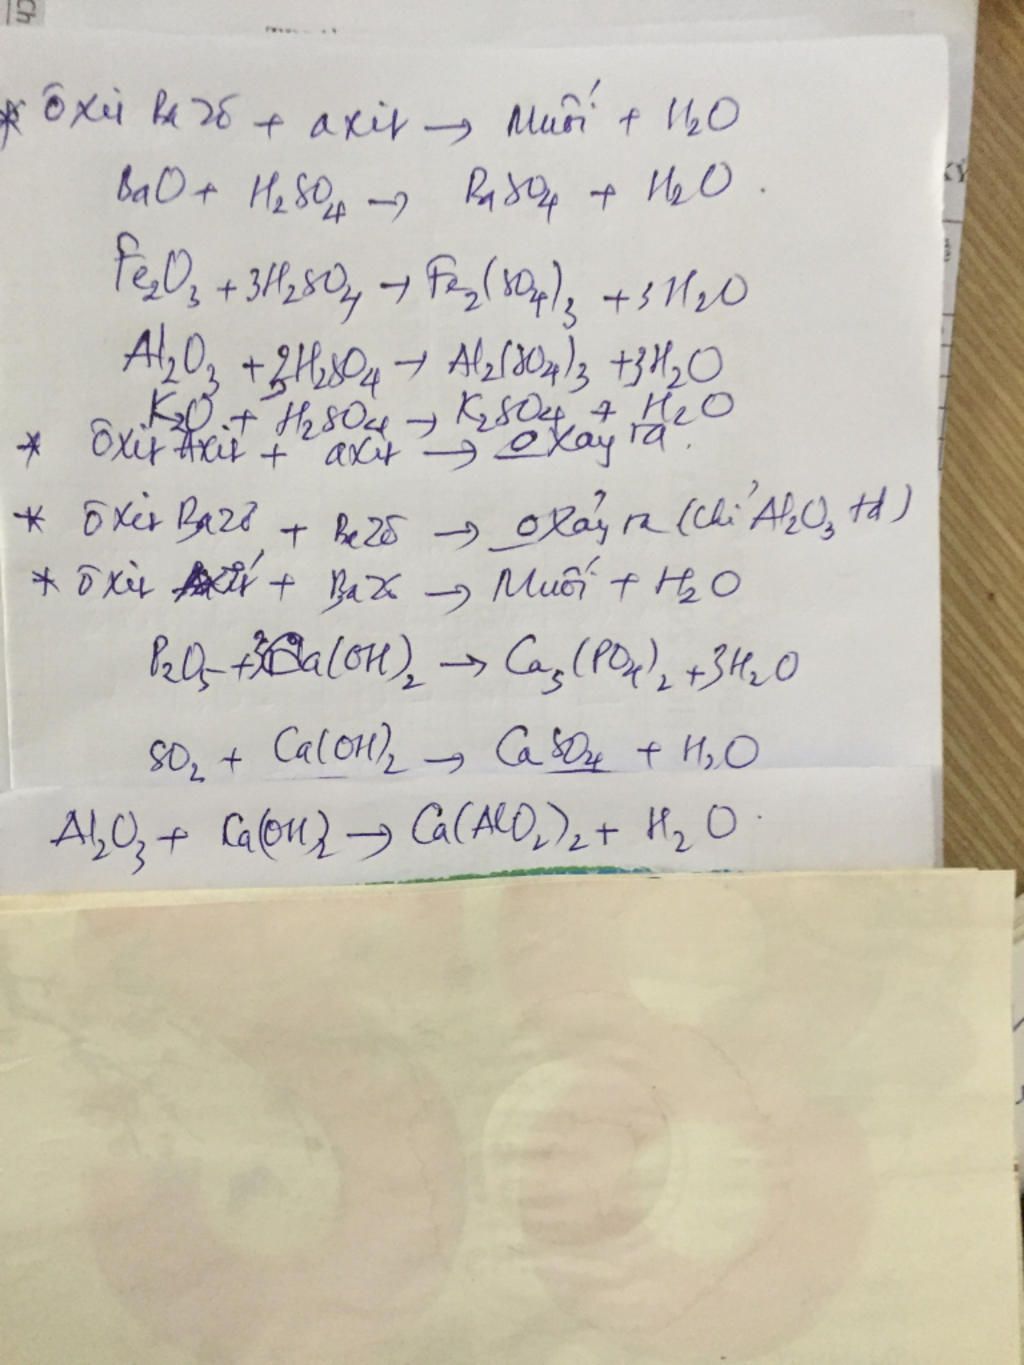 * ôxit Bazơ + axit → Muối + H₂O
BaO + H₂SO₄ → BaSO₄ + H₂O.
Fe₂O₃ + 3H₂SO₄ → Fe₂(SO₄)₃ + 3H₂O
Al₂O₃ + 3H₂SO₄ → Al₂(SO₄)₃ + 3H₂O
K₂O + H₂SO₄ → K₂SO₄ + H₂O
* Ôxit Axit + axit → o xảy ra.
* ôxit Bazơ + Bazơ → o xảy ra (chỉ Al₂O₃ td)
* ôxit axit + Bazơ → Muối + H₂O
P₂O₅ + 3Ca(OH)₂ → Ca₃(PO₄)₂ + 3H₂O
SO₂ + Ca(OH)₂ → CaSO₄ + H₂O
Al₂O₃ + Ca(OH)₂ → Ca(AlO₂)₂ + H₂O.